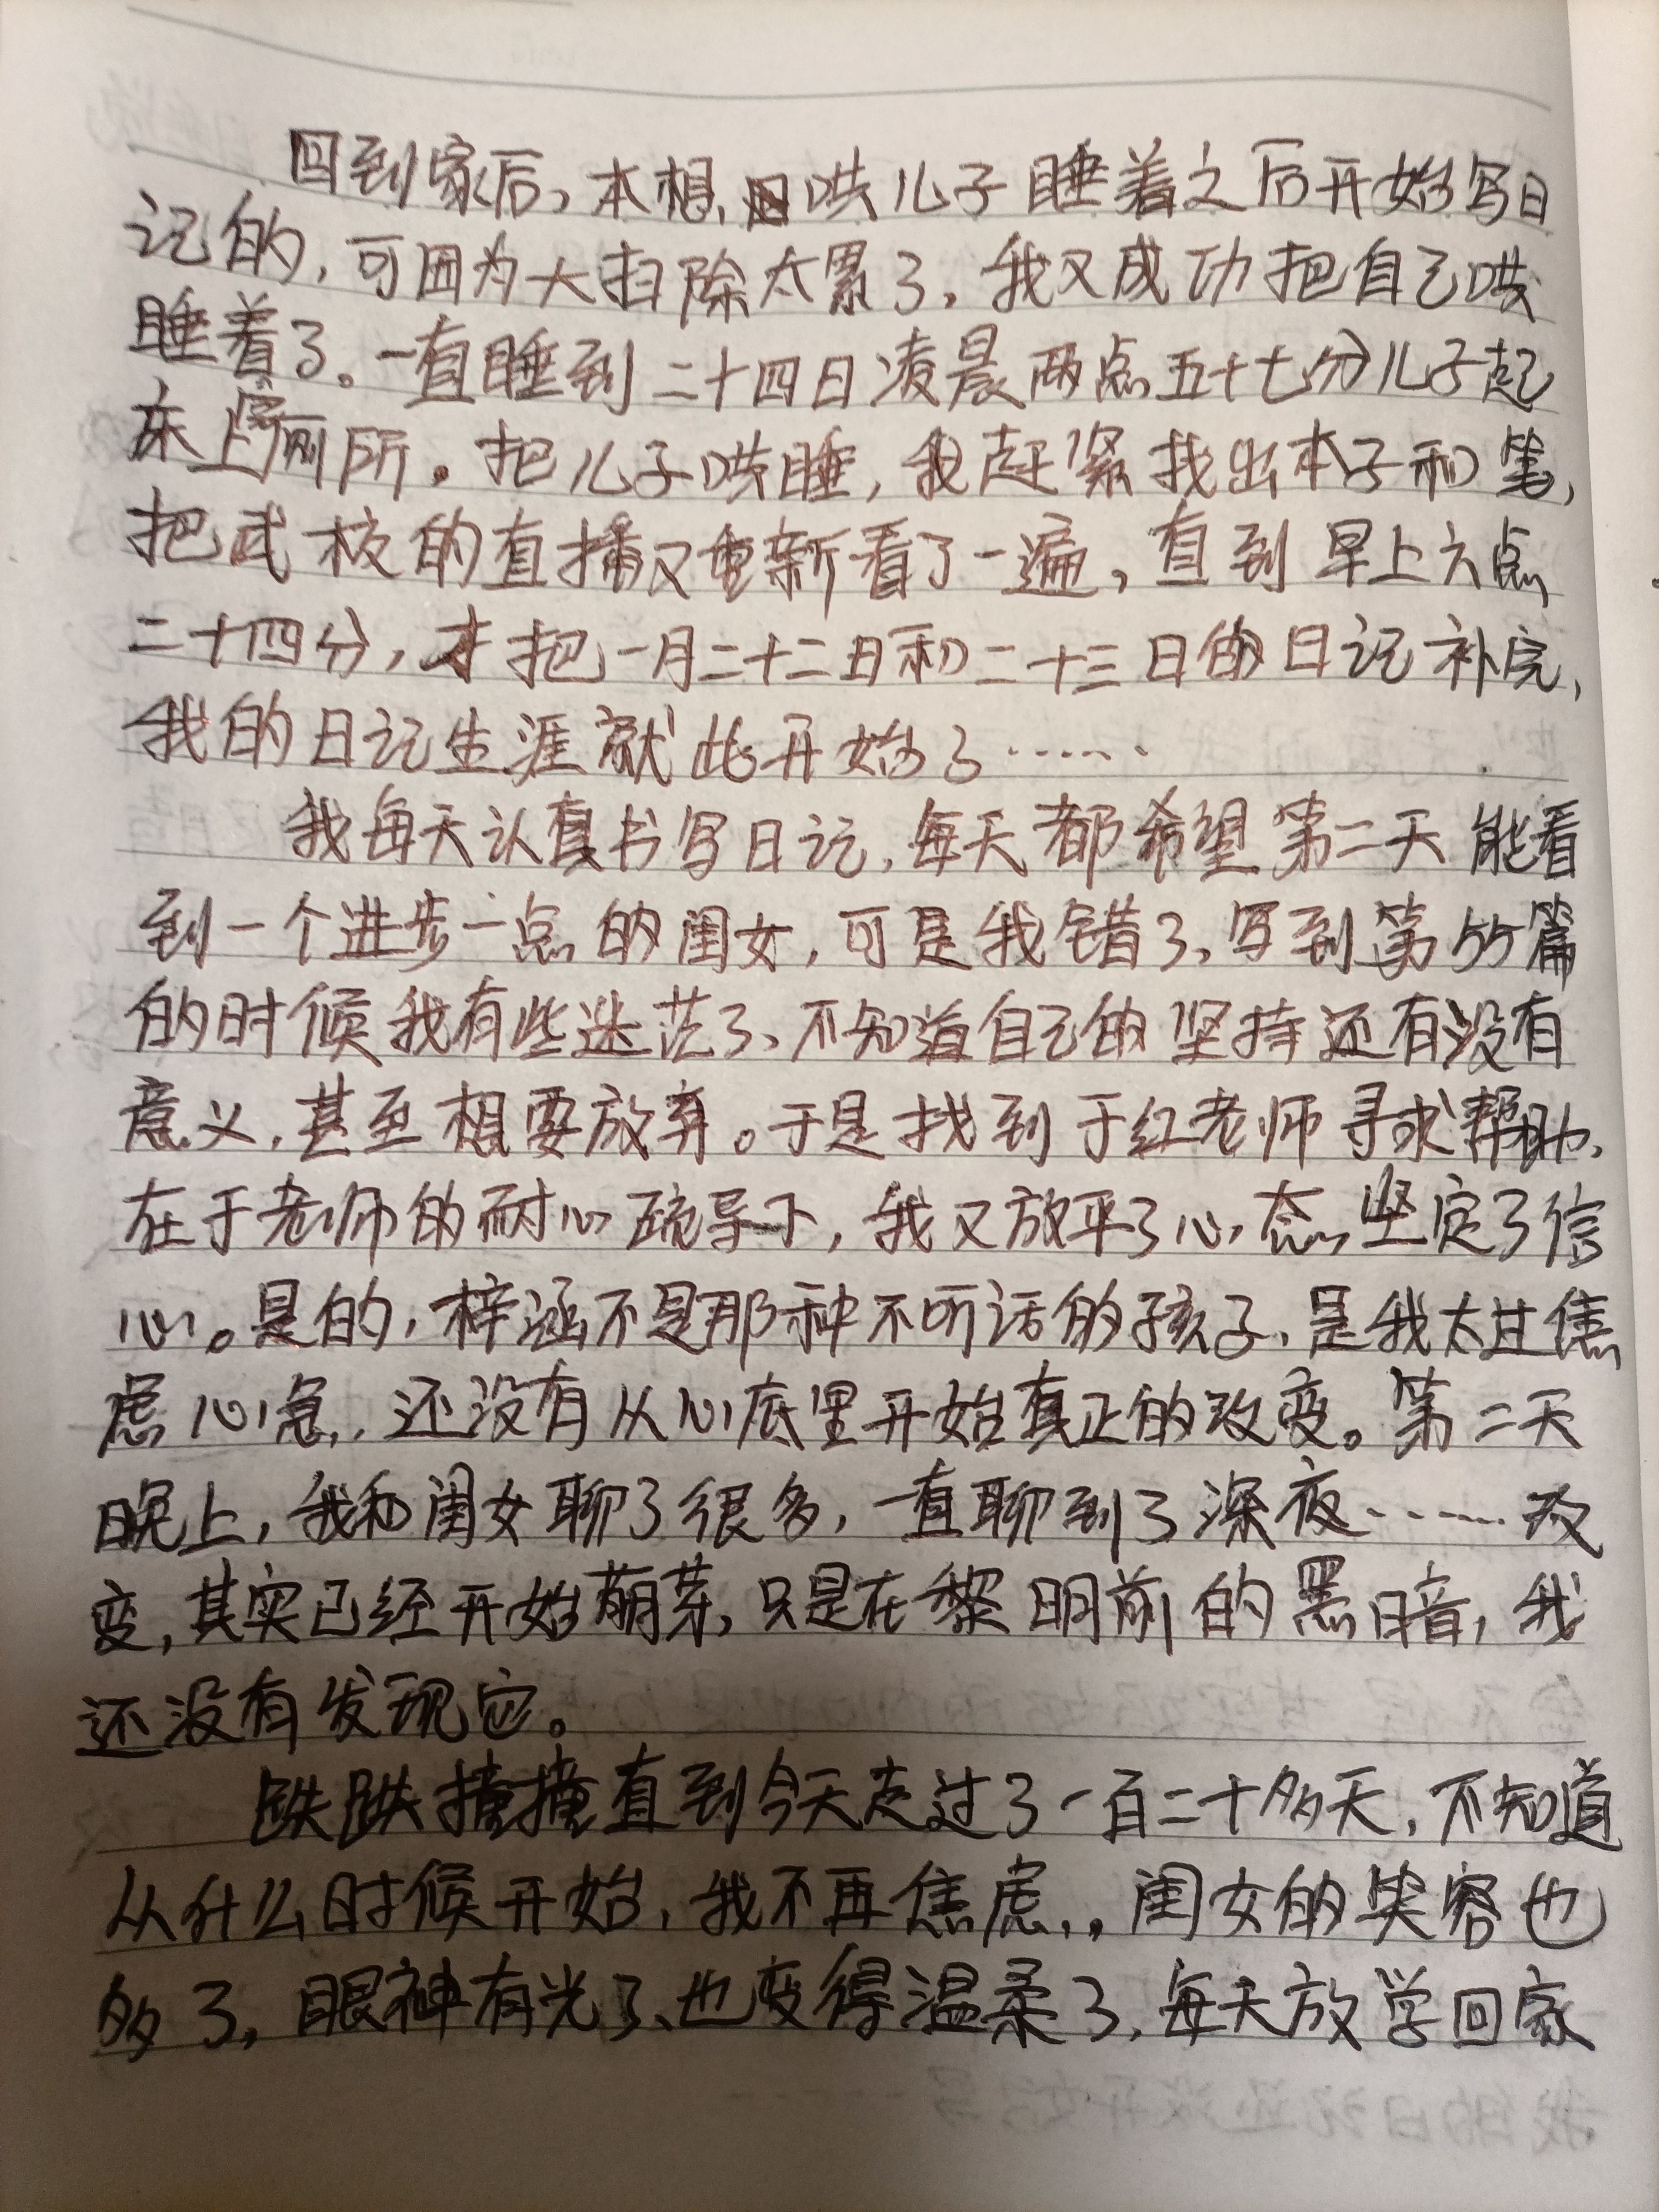 回到家后，本想哄儿子睡着之后开始写日
记的，可因为大扫除太累了，我又成功把自己哄
睡着了。一直睡到二十四日凌晨两点五十七分儿子起
床上厕所。把儿子哄睡，我赶紧找出本子和笔，
把武校的直播又重新看了一遍，直到早上六点
二十四分，才把一月二十二日和二十三日的日记补完，
我的日记生涯就此开始了……
我每天认真书写日记，每天都希望第二天能看
到一个进步一点的闺女，可是我错了，写到第55篇
的时候我有些迷茫了、不知道自己的坚持还有没有
意义，甚至想要放弃。于是找到于红老师寻求帮助，
在于老师的耐心疏导下，我又放平了心态，坚定了信
心。是的，梓涵不是那种不听话的孩子，是我太过焦
虑心急，还没有从心底里开始真正的改变。第二天
晚上，我和闺女聊了很多，一直聊到了深夜……改
变，其实已经开始萌芽，只是在黎明前的黑暗，我
还没有发现它。
跌跌撞撞直到今天走过了一百二十多天，不知道
从什么时候开始，我不再焦虑，闺女的笑容也
多了，眼神有光了、也变得温柔了，每天放学回家